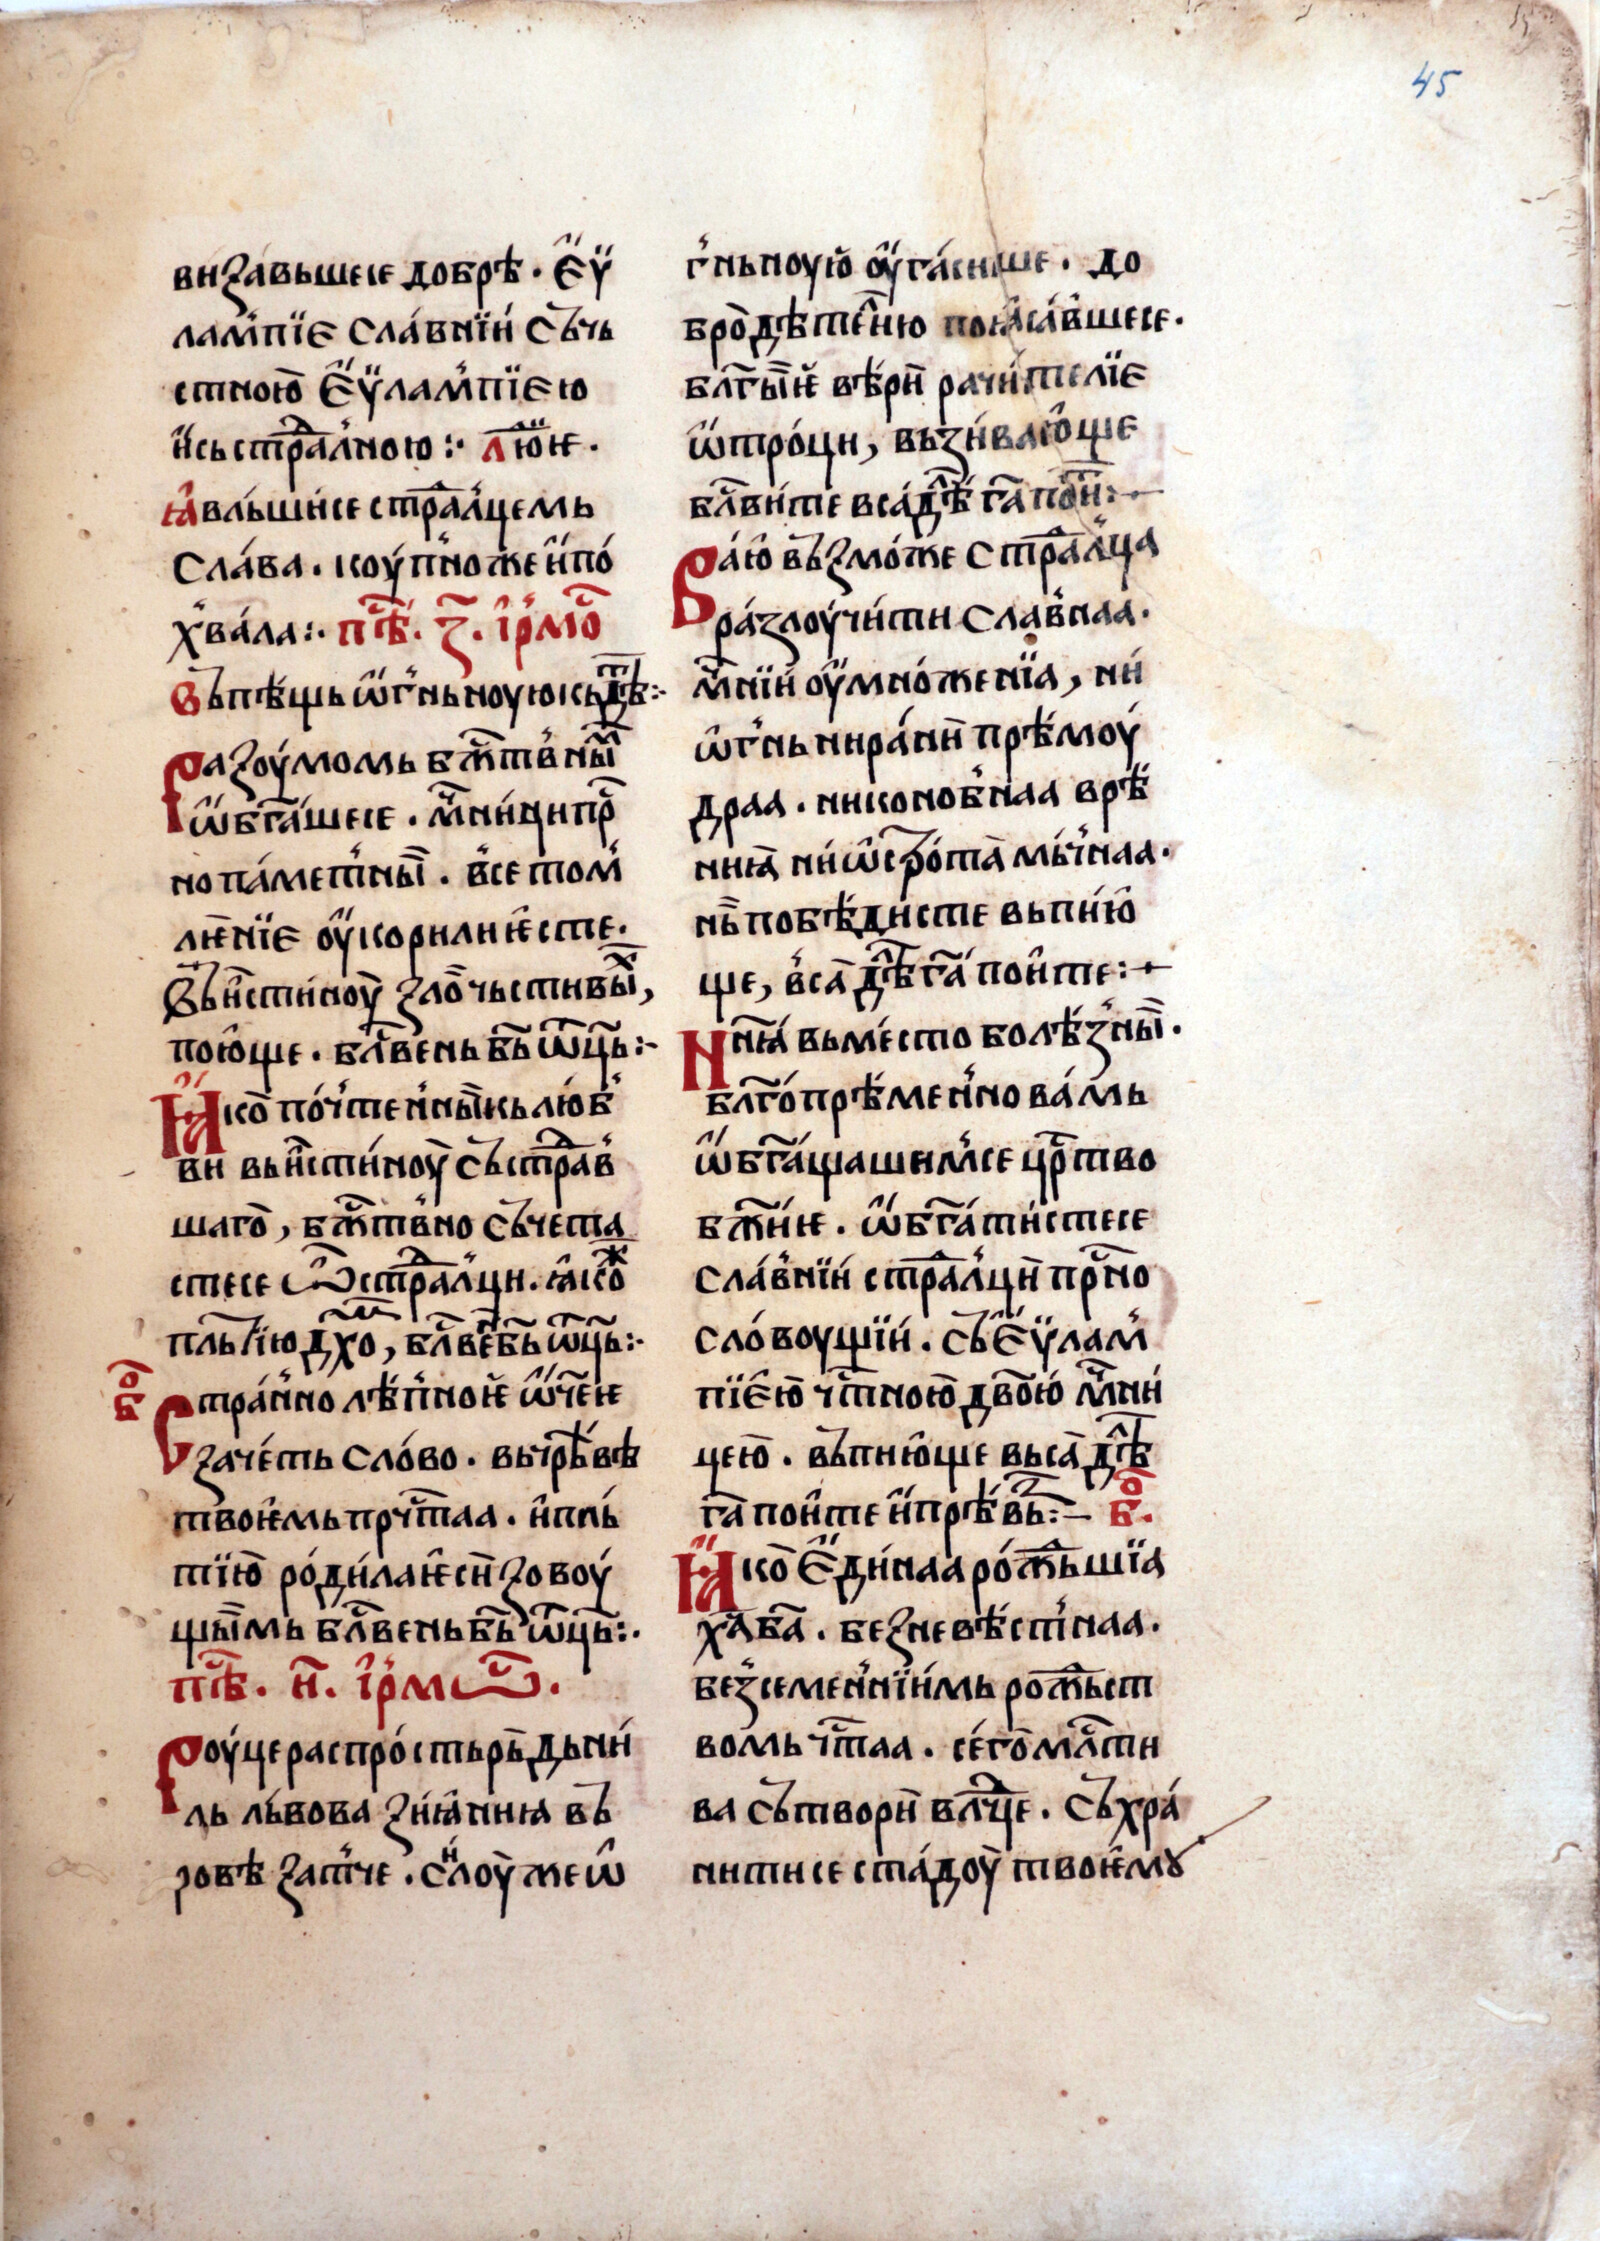 45
виꙁавьшеѥ добрѣ · Єѵ
лампїє славнїи съчь
стною Єѵлампїєю
исьстралною :· люѥ ·
ꙗвльшисе стралцемь
слава · коупноже и по
хвала :· пѣ · ꙁ · ірмо
въпѣщь ѡгньноую къдѣ :·
Раꙁоумомь бжтвны
ѡбгашесе · мчници пр
но паметны · все том
лѥнїє оукорили ѥсте ·
Въистиноу ꙁлочьстивыхъ,
поюще · блвень бъ ѿць :·
Ꙗко почтенныкь любь
ви въистиноу състрав
шаго, бжтвно съчета
стесе ѡ стралци · ꙗкож
пльтїю дхо, блвенбъ ѿць :·
Странно лѣпноѥ ѿчеѥ
ꙁачеть слово · въчрѣвѣ
твоѥмь прчтаа · и пль
тїю родила ѥси ꙁовоу
щымь блвень бъ ѿць :·
пѣ · и · ірмѡ ·
Роуцераспростьръ дьни
ль львова ꙁиꙗниꙗ въ
ровѣ ꙁатче · силоу же ѡ
гньноую оугасише · до
бродѣтелню поꙗсавшесе ·
блгыѥ вѣри рачителїє
ѡтроци, въꙁивающе
блвите всадѣ га пои :·
Ваю въꙁможе стралца
раꙁлоучити славнаа ·
мчнїи оумноженїа, ни
ѡгнь ни рани прѣмоу
драа · ни коновнаа врѣ
ниꙗ ни ѡстрота мьчнаа ·
нъ побѣдисте вьпию
ще, вса дѣ га поите :·
Ннꙗ вьместо болѣꙁны ·
блгопрѣменно вамь
ѡбгащашимсе цртво
бжиѥ · ѡбгатистесе
славнїи стралци прно
словоущїи · съ Єѵлам
пїєю чтною двою мчни
цею · въпиюще вьса дѣ
га поите и прѣвъꙁ :· бо ·
Ꙗко Єдинаа рожьшїа
ха ба · беꙁневѣстнаа ·
беꙁсеменнїимь рожьст
вомь чтаа · сего млти
ва сътвори влце · съхра
нити се стадоу твоѥмꙋ